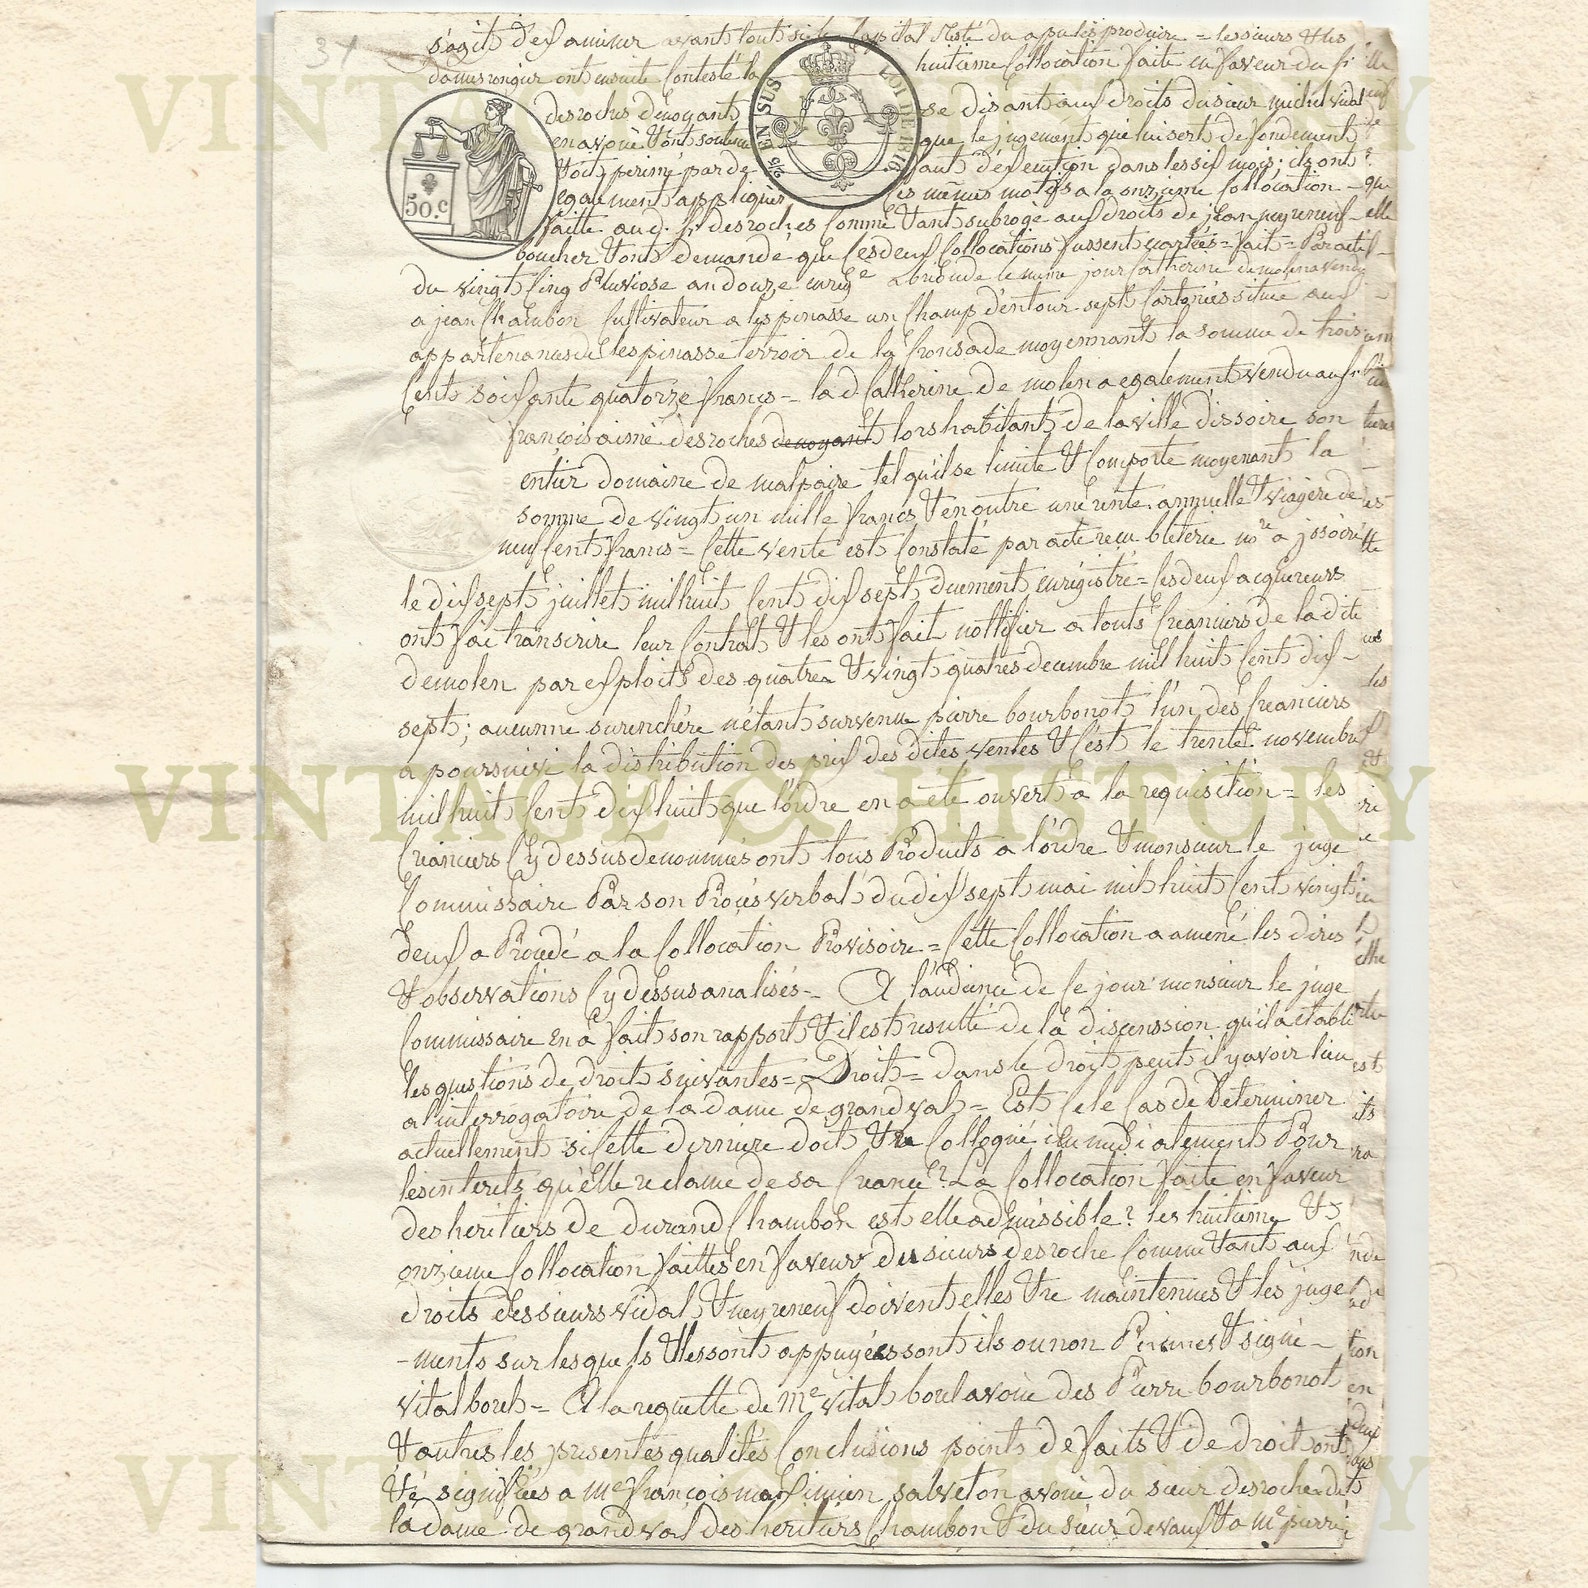 31
s'agit d'examiner avant tout si le Capital reste du apu les produire = les sieurs & les
dames rongier ont ensuite Contesté la huitieme Collocation faite en faveur du sr
desroches denoyant se disant aux droits du sieur michel vidal
en avoué & ont soutenu que le jugement qui lui sert de fondement
etoit perimé par defaut d'execution dans les six mois; ils ont
egalement appliqués les mêmes motifs a la onzieme Collocation
faitte au d. sr. desroches Comme etant subrogé aux droits de jean neyreneuf
boucher & ont demandé que Ces deux Collocations fussent ecartées = fait = Par acte
du vingt Cinq Pluviose an douze enrge a brioude le même jour Catherine demolen a vendu
a jean Chambon Cultivateur a lespinasse un Champ d'entour sept Cartonées situé aux
appartenances de lespinasse terroir de la Croisade moyennant la somme de trois
Cent soixante quatorze francs = la d Catherine de molen a egalement vendu au sr
françois aimé desroches denoyant lors habitant de la ville d'issoire son
entier domaine de malpaire tel qu'il se limite & Comporte moyenant la
somme de vingt un mille francs & en outre une rente annuelle & viagère de
neuf Cent francs = Cette vente est Constaté par acte reçu bleterie nore a jssoire
le dix sept juillet mil huit Cent dix sept duement enrégistré = les deux acquereurs
ont fait transcrire leur Contrat & les ont fait nottifier a touts Creanciers de la dite
demolen par exploits des quatre & vingt quatre decembre mil huit Cent dix
sept; aucunne surenchére n'étant survenue pierre bourbonot l'un des Creanciers
a poursuivi la distribution des prix des dites ventes & C'est le trente novembre
mil huit Cent dix huit que l'ordre en a été ouvert a la requisition = les
Creanciers Cy dessus denommés ont tous Produits a l'ordre & monsieur le juge
Commissaire Par son Procès verbal du dix sept mai mil huit Cent vingt
deux a Procédé a la Collocation Provisoire = Cette Collocation a amené les dires
& observations Cy dessus analisés = A l'audience de Ce jour monsieur le juge
Commissaire en a fait son rapport & il est resulté de la discussion qu'il a etabli
les questions de droit suivantes = Droit = dans le droit peut il y avoir lieu
a l'interrogatoire de la dame de grandval = Est Ce le Cas de Determiner
actuellement si Cette derniere doit etre Colloqué immediatement Pour
les interets qu'elle reclame de sa Creance? La Collocation faite en faveur
des heritiers de durand Chambon est elle admissible? les huitieme &
onzieme Collocation faittes en faveur du sieurs desroche Comme etant aux
droits des sieurs vidal & neyreneuf doivent elles etre maintenues & les juge
-ments sur lesquels elles sont appuyées sont ils ou non Perimés & signé -
vital borel = A la requette de Me vital borel avoué des Pierre bourbonot
& autres les presentes qualités Conclusions points de faits & de droit ont
eté signifiées a Me françois maximien salveton avoué du sieur desroche de
la dame de grandval des heritiers Chambon & du sieur devaux & a Me pierre
50.c
EN SUS
LOI DE 1816
VINTAGE & HISTORY
VINTAGE & HISTORY
VINTAGE & HISTORY